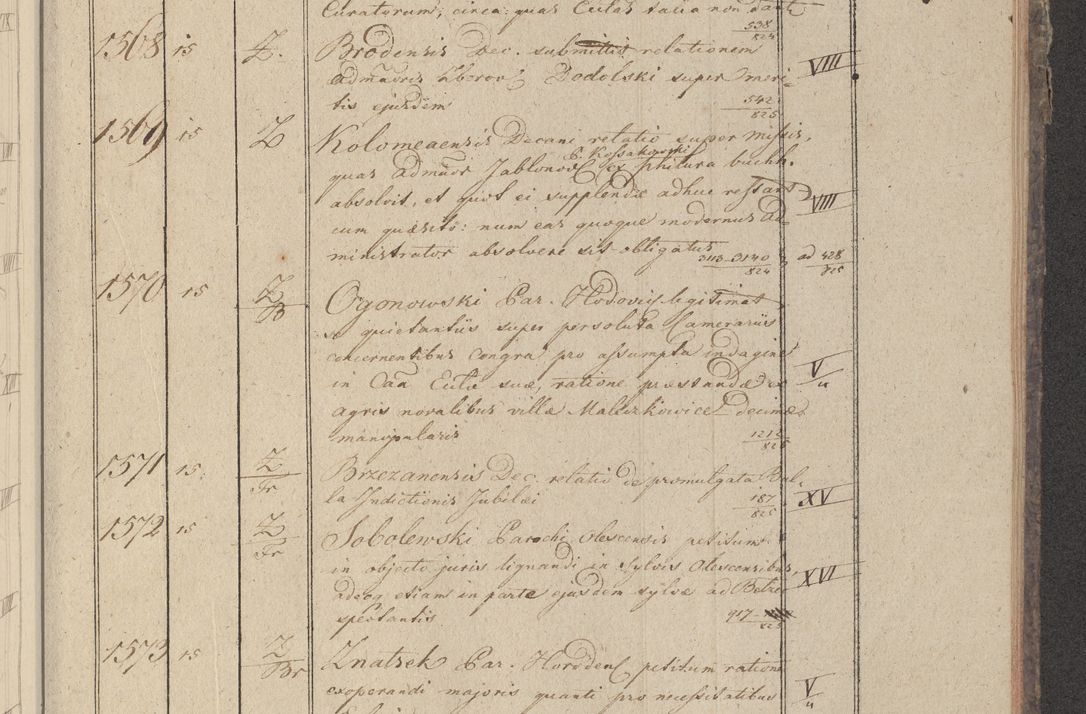 Curatorum, circa quas Eccla talia non dantr
538
824
1568 15 Z. Brodensis Dec. submittit relationem
VIII
admāoris Zborov Dodolski super meri-
tis ejusdem
542
825
1569 15 Z Kolomeaensis Decani relatio super missis,
P. Kossakowski
quas Admāor Jablonov ex phitura buchh.
absolvit, et quot ei supplendæ adhuc restant
VIII
cum quæsito: num eas quoque modernus ad-
ministrator absolvere sit obligatus
3113-3140
824
ad 428
825
1570 15 Z
Br
Ogonowski Par. Hodovic legitimat
se quietantiis super persoluta Camerariis
concernentibus congra pro assumpta indagine
V
u
in Caā Eclæ suæ, ratione præstandæ ex
agris novalibus villæ Maluzkowice decimæ
manipularis
1212
825
1571 15. Z
Fr
Brzezanensis Dec. relatio de promulgata Bul-
la Indictionis Jubilæi
187
825
XV
1572 15 Z
Fr
Sobolewski Parochi Olescensis petitum
in objecto juris lignandi in Sylvis Olescensibus,
XVI
adeoq etiam in parte ejusdem sylvæ ad Belzec
spectantis
917
825
1573 15 Z
Br
Znatsek Par. Horoden petitum ratione
exoperandi majoris quanti pro necessitatibus
V
u